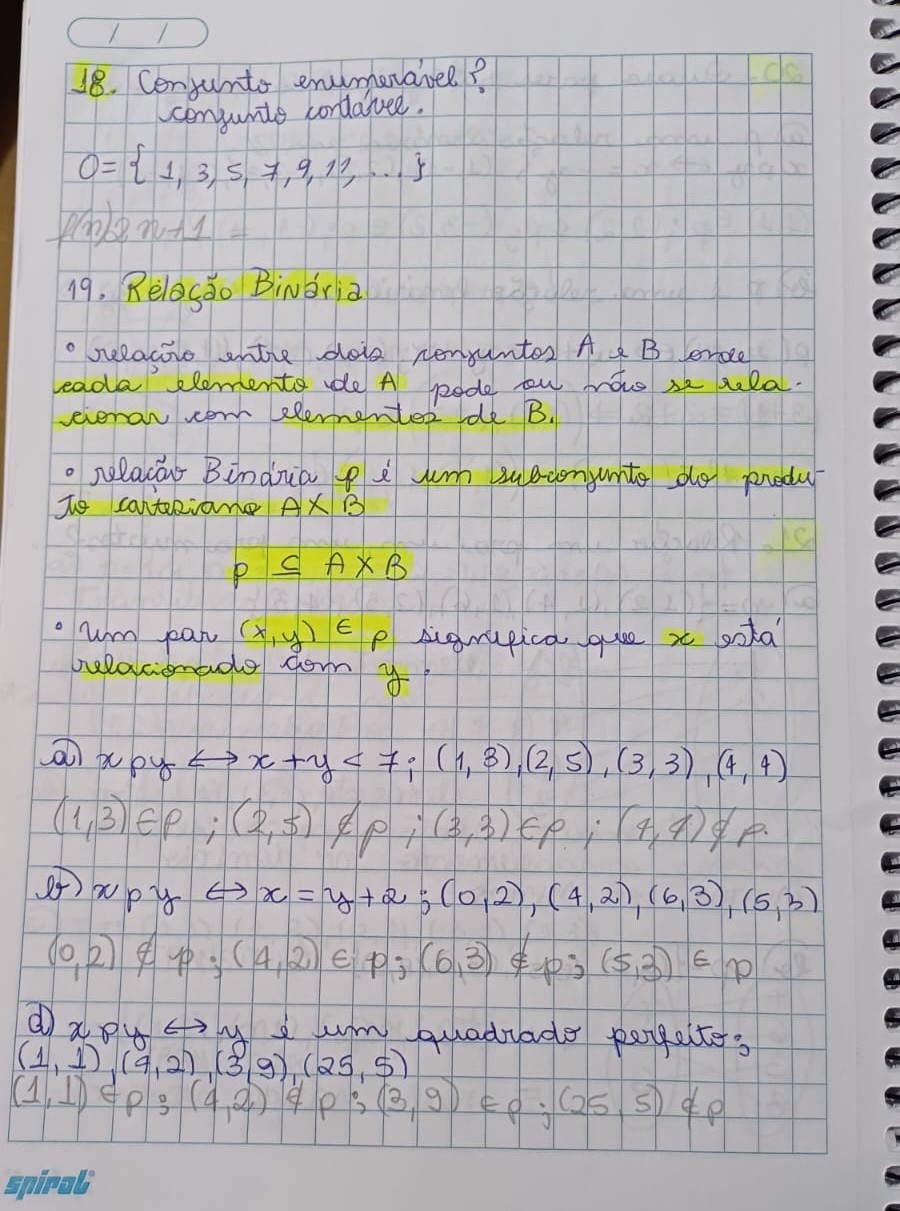 / /
18. Conjunto enumerável?
conjunto contável.
O = { 1, 3, 5, 7, 9, 11, ... }
f(n) 2n+1 =
19. Relação Binária
• relação entre dois conjuntos A e B onde
cada elemento de A pode ou não se rela-
cionar com elementos de B.
• relação Binária ρ é um subconjunto do produ-
to cartesiano A X B
ρ ⊆ A X B
• um par (x, y) ∈ ρ significa que x está
relacionado com y.
a) x ρ y ↔ x + y < 7; (1, 3), (2, 5), (3, 3), (4, 4)
(1,3) ∈ ρ ; (2,5) ∉ ρ ; (3,3) ∈ ρ ; (4,4) ∉ ρ.
b) x ρ y ↔ x = y + 2 ; (0,2), (4,2), (6,3), (5,3)
(0,2) ∉ ρ ; (4,2) ∈ ρ ; (6,3) ∉ ρ ; (5,3) ∈ ρ
d) x ρ y ↔ y é um quadrado perfeito;
(1, 1), (4,2), (3,9), (25, 5)
(1,1) ∈ ρ ; (4,2) ∉ ρ ; (3,9) ∈ ρ ; (25,5) ∉ ρ
spiral